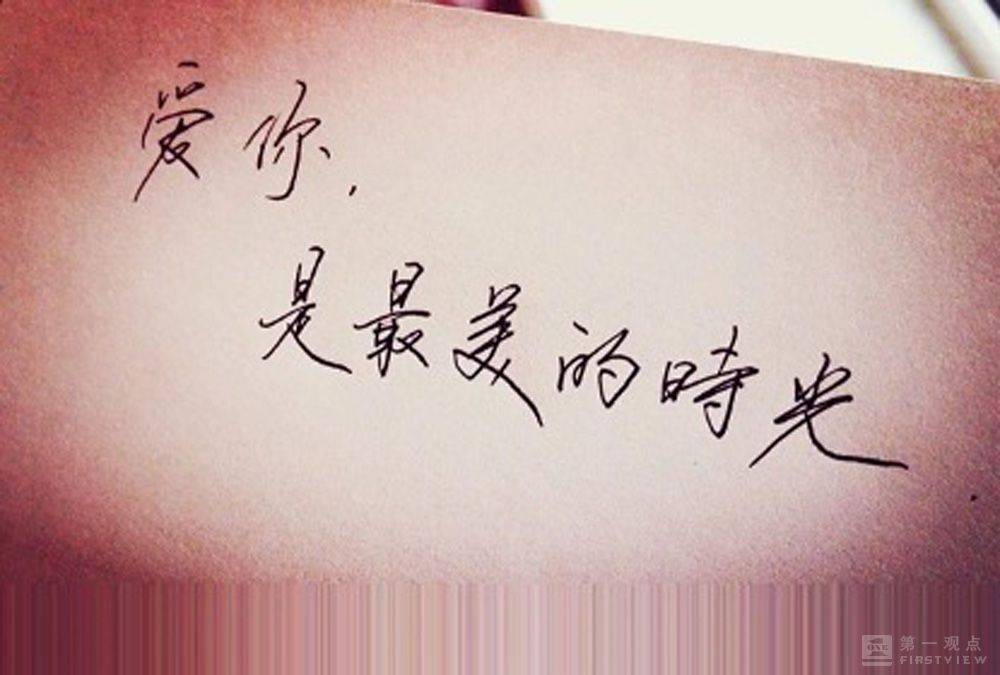 爱你,
是最美的時光
第一观点
ONE
FIRSTVIEW